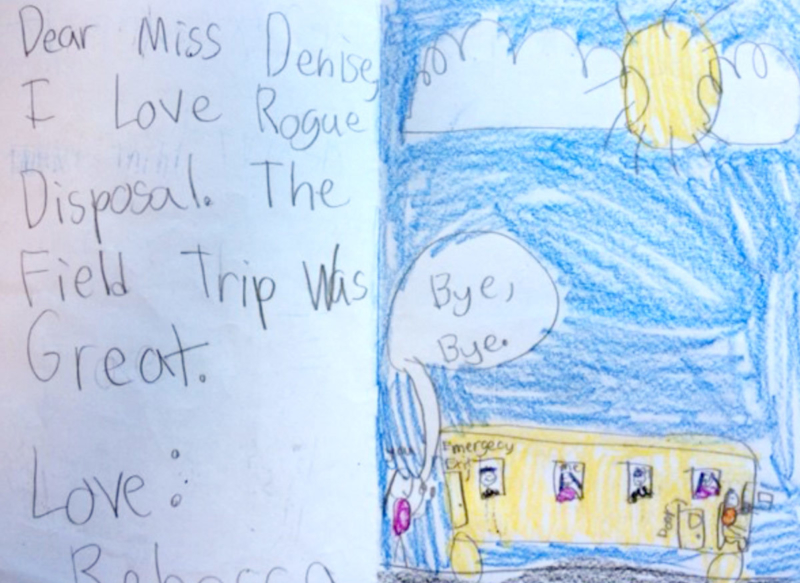 Dear Miss Denise,
I Love Rogue
Disposal. The
Field Trip Was
Great.
Love:
Rebecca
Bye,
Bye.
you
Emergecy
Exit
me
Door